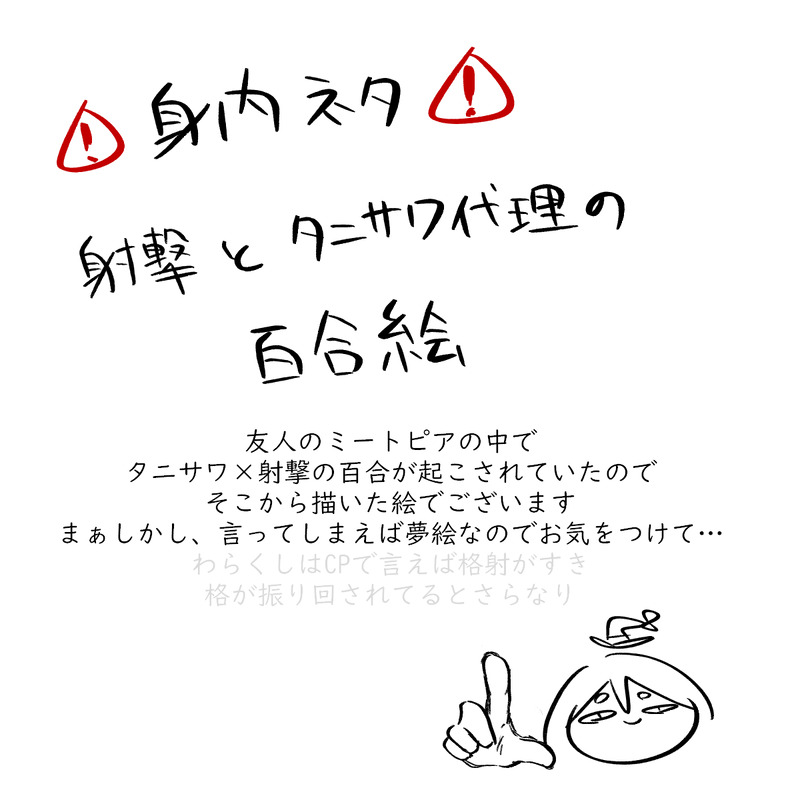 身内ネタ
射撃とタニサワ代理の
百合絵
友人のミートピアの中で
タニサワ×射撃の百合が起こされていたので
そこから描いた絵でございます
まぁしかし、言ってしまえば夢絵なのでお気をつけて…
わらくしはCPで言えば格射がすき
格が振り回されてるとさらなり